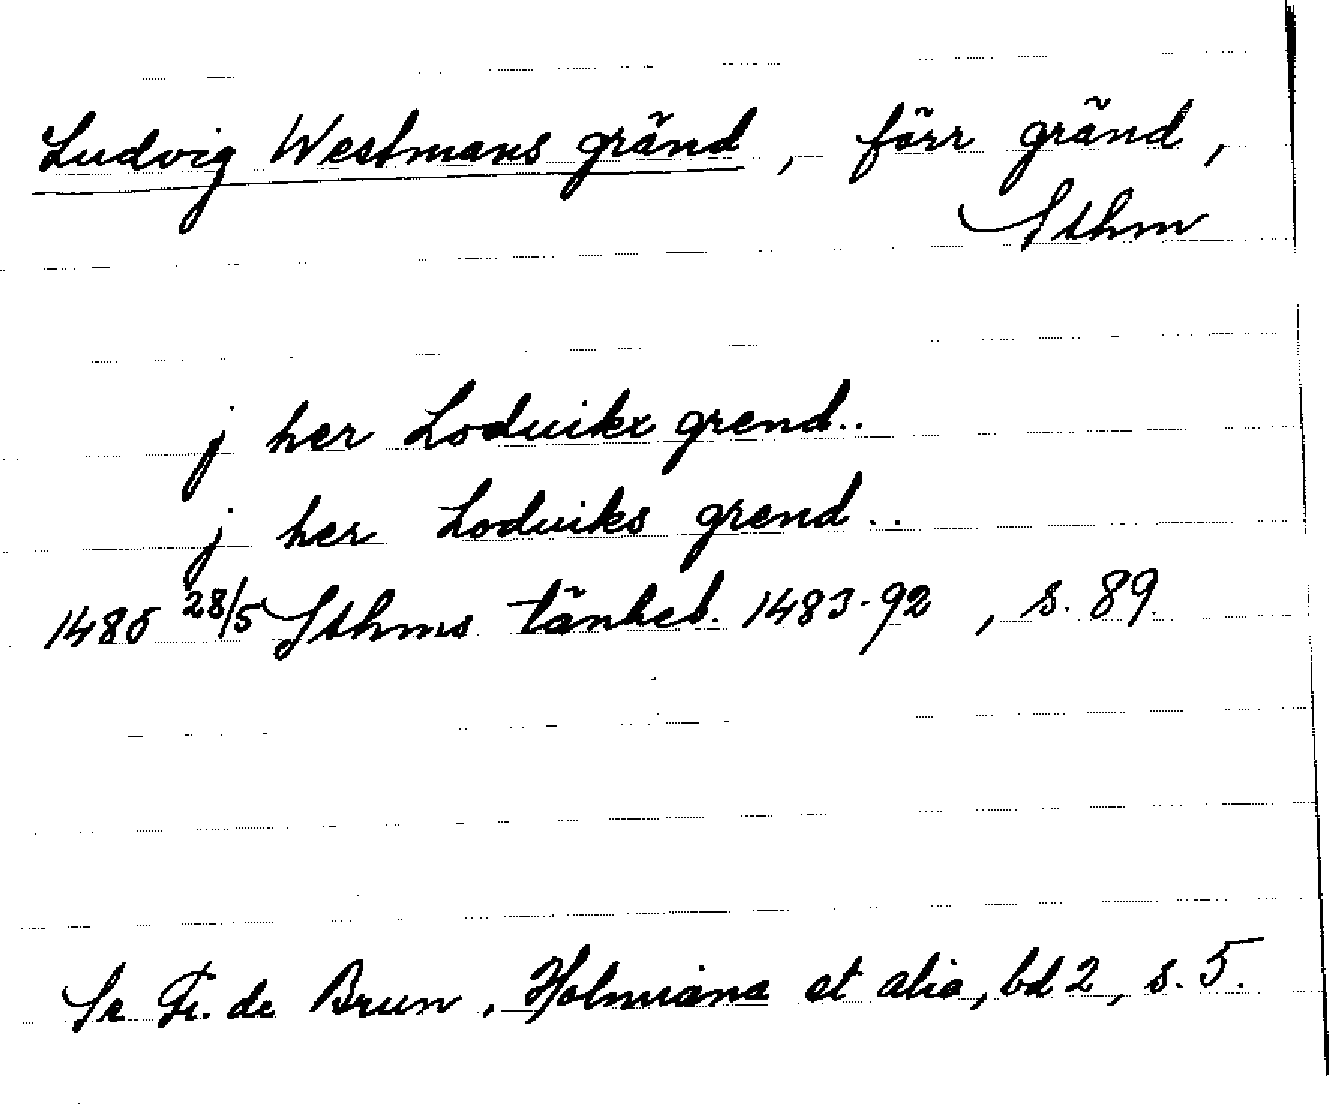 Ludvig Westmans gränd, förr gränd,
Sthm
j her Loduikx grend..
j her Loduiks grend..
1485 28/5 Sthms tänkeb. 1483-92, s. 89
Se Fr. de Brun, Holmiana et alia, bd 2, s. 5.